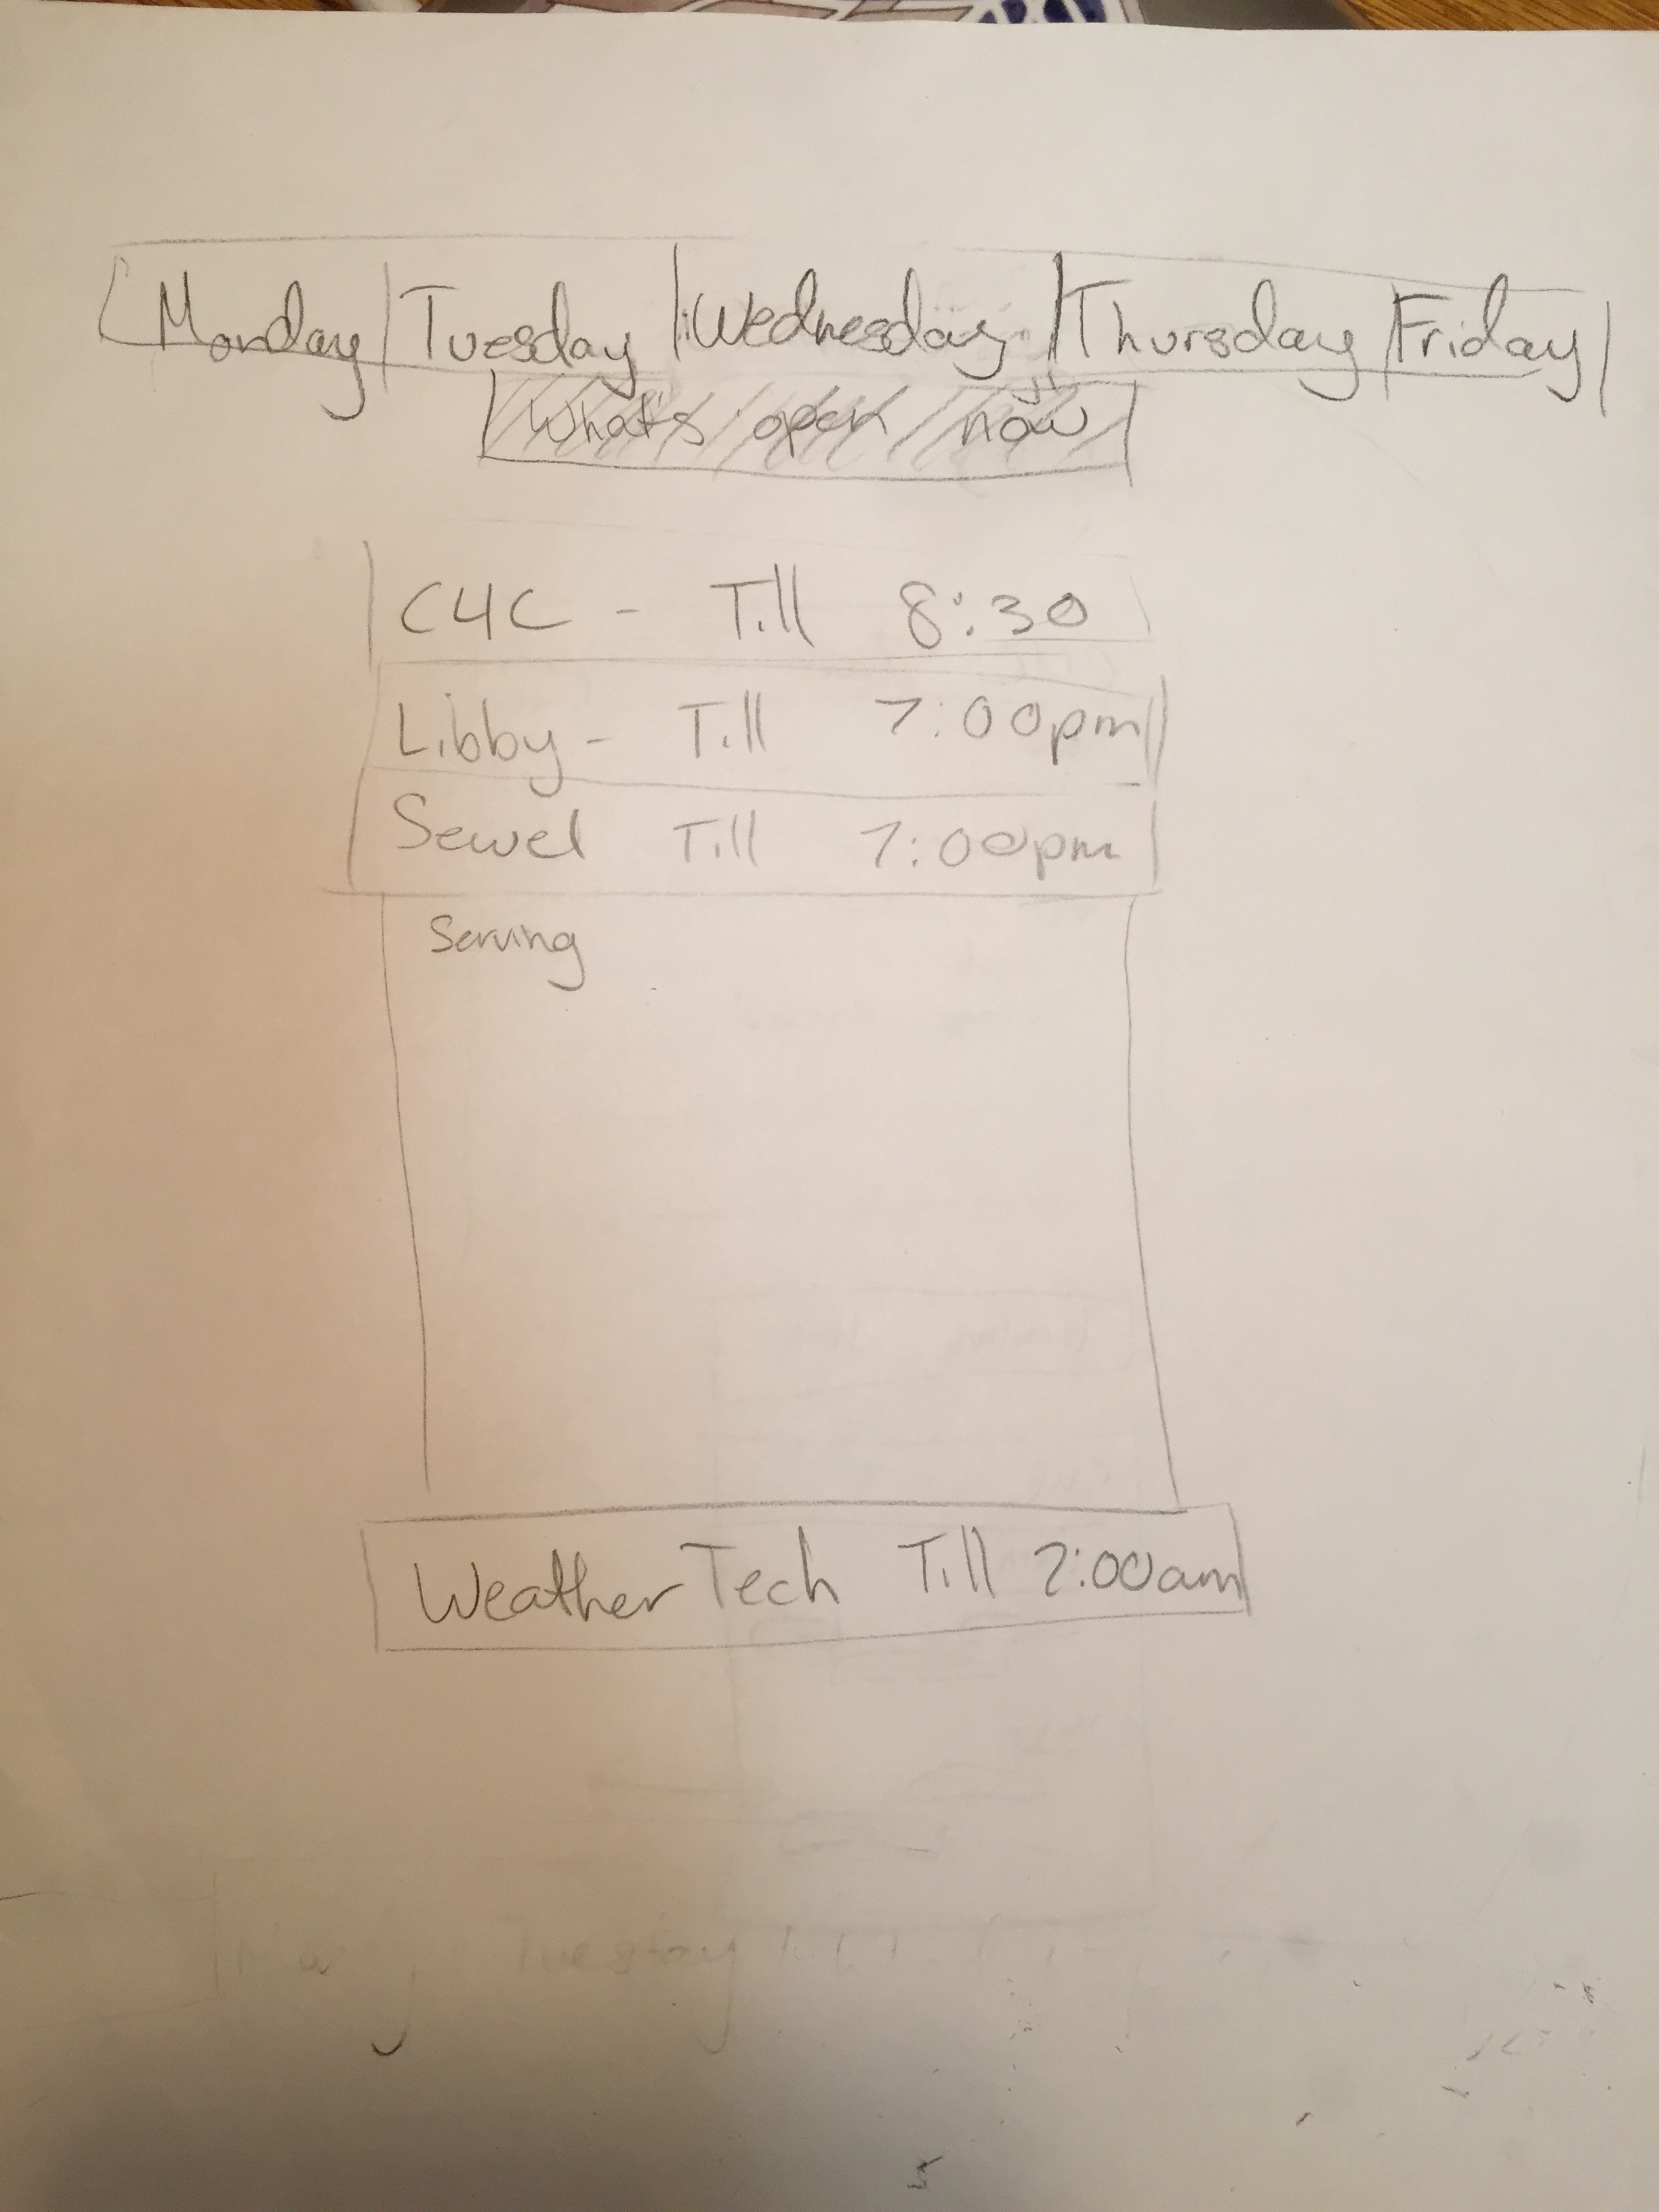 Monday Tuesday Wednesday Thursday Friday
What's open now
C4C - Till 8:30
Libby - Till 7:00pm
Sewel Till 7:00pm
Serving
WeatherTech Till 2:00am
Tuesday